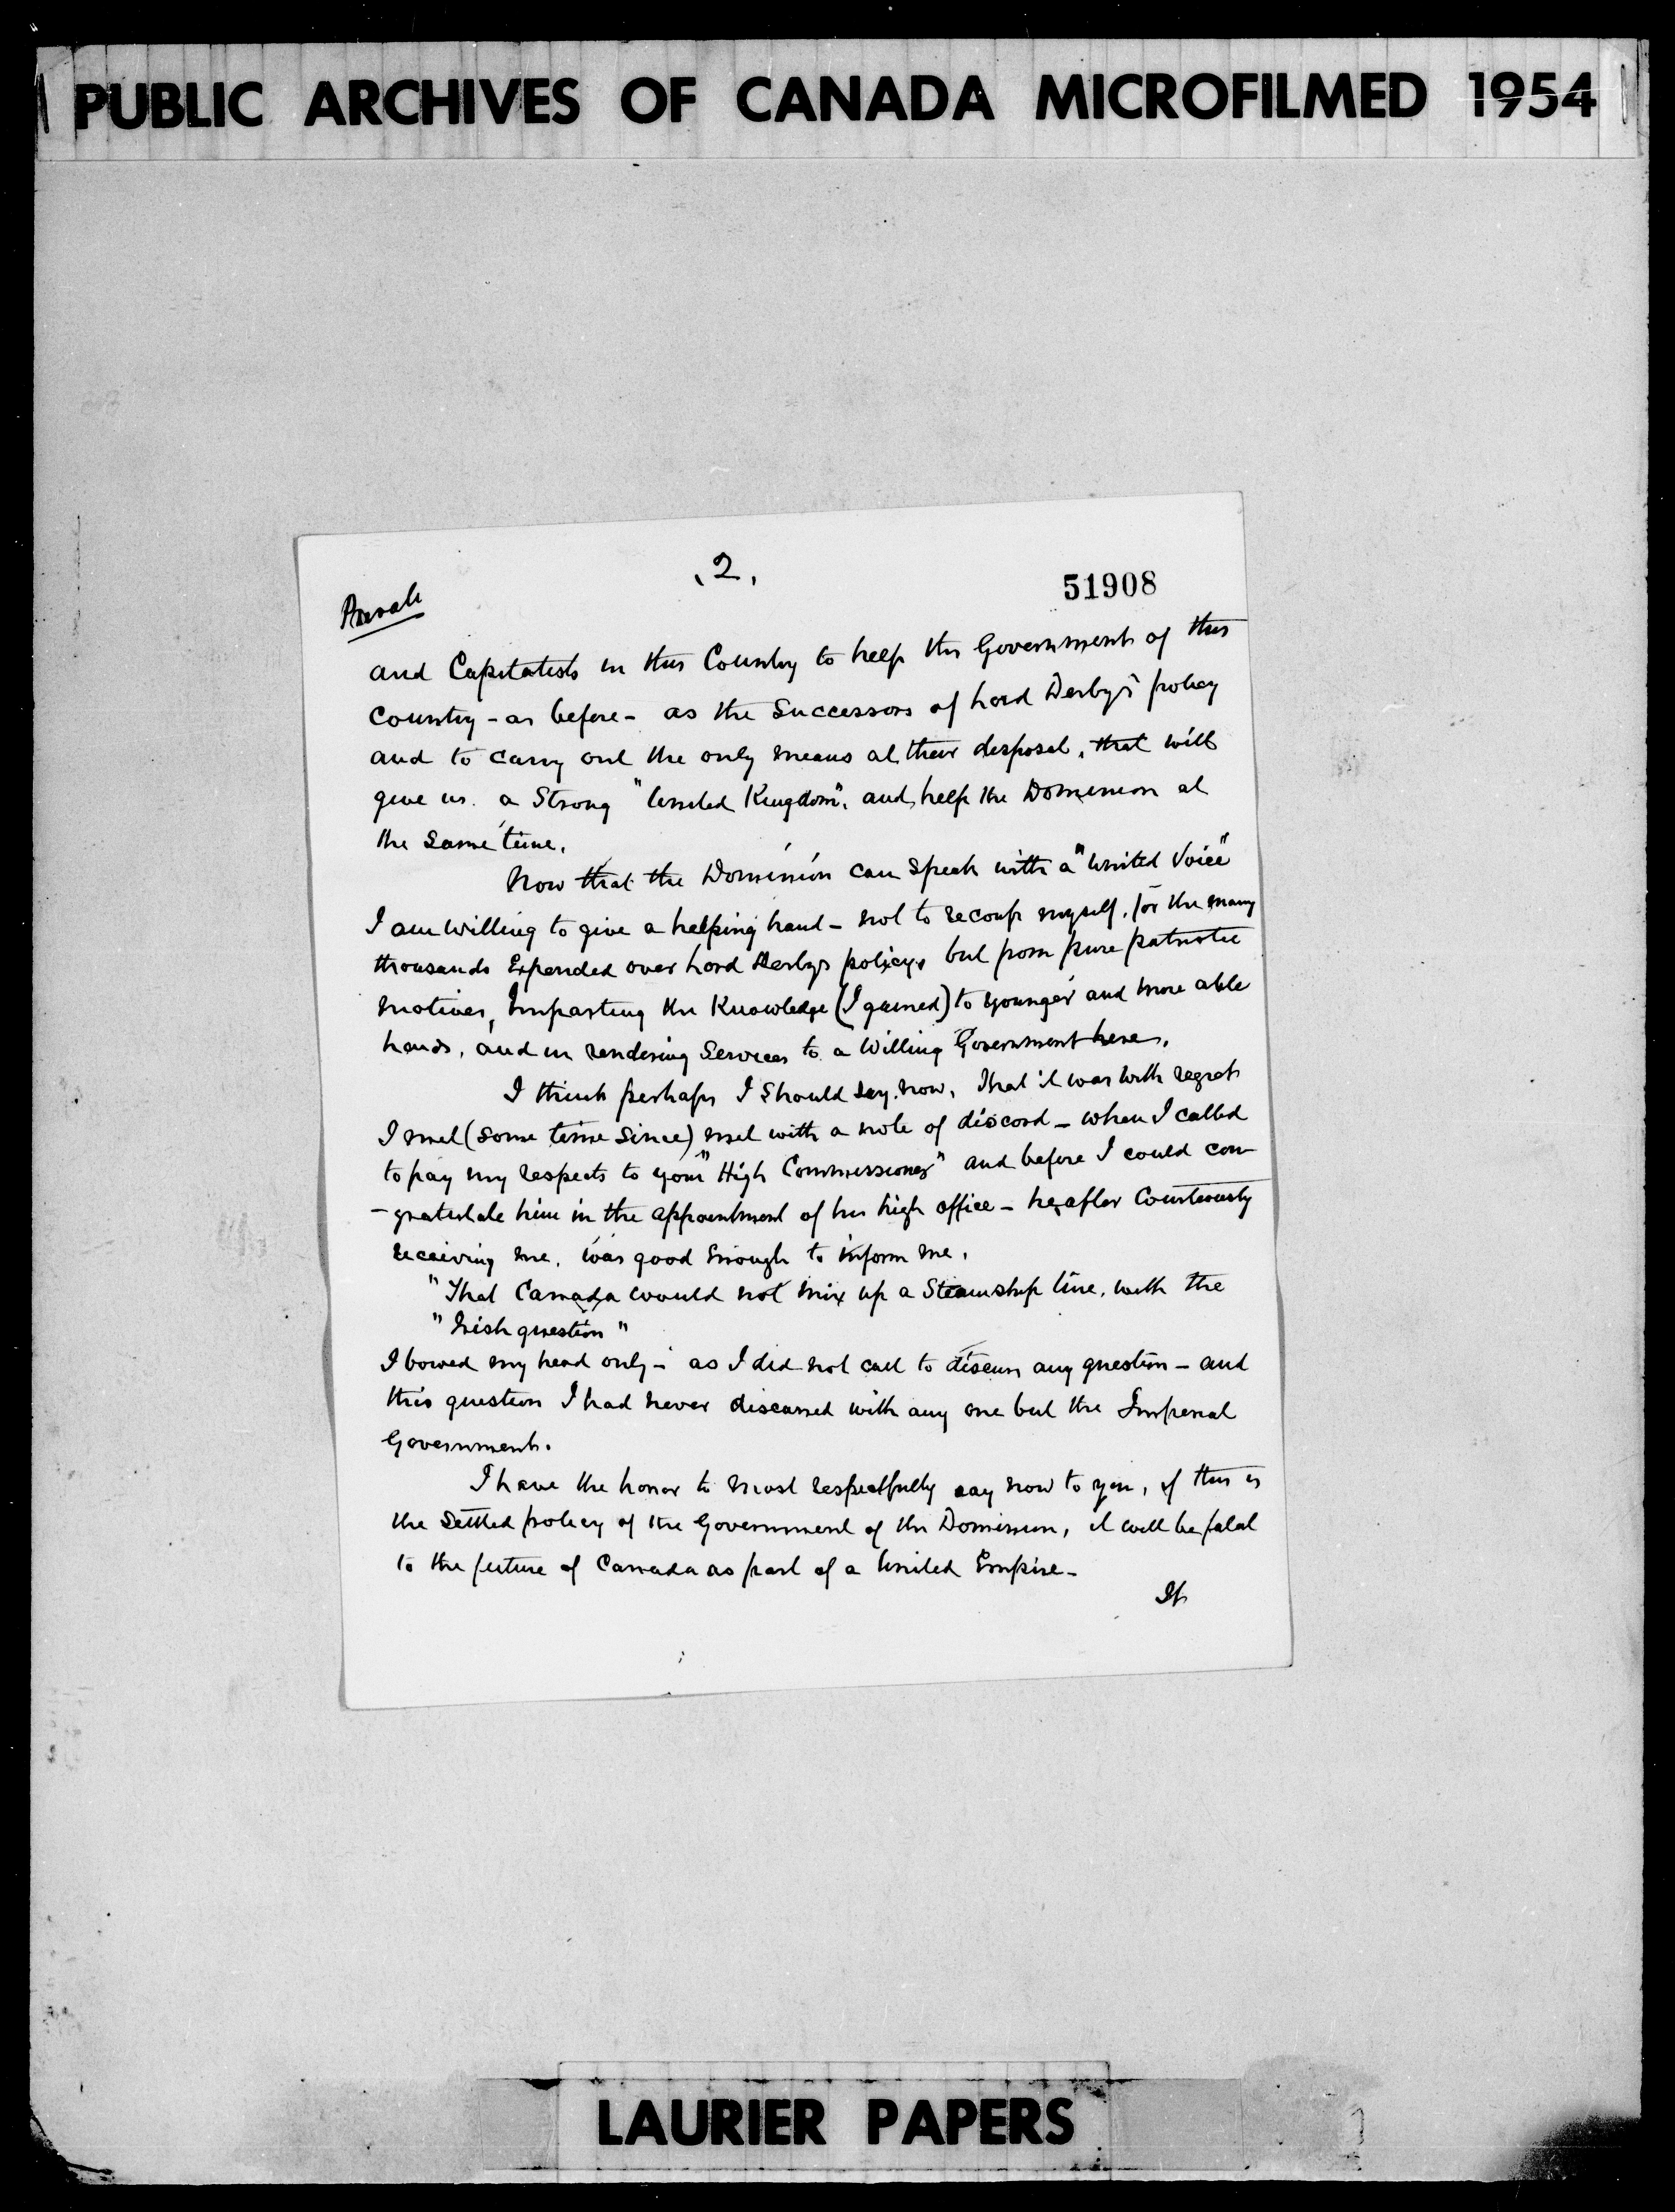 PUBLIC ARCHIVES OF CANADA MICROFILMED 1954
.2.
51908
Private
and Capitalists in this Country to help the Government of this
Country - as before - as the Successors of Lord Derby's policy
and to carry out the only means at their disposal, that will
give us a Strong "United Kingdom", and help the Dominion at
the same time.
Now that the Dominion can speak with a "United Voice"
I am willing to give a helping hand - not to recoup myself, for the many
thousands Expended over Lord Derbys policy, but from pure patriotic
motives, Imparting the Knowledge (I gained) to younger and more able
hands, and in rendering Services to a Willing Government here.
I think perhaps I should say now, that it was with regret
I met (some time since) met with a note of discord - when I called
to pay my respects to your "High Commissioner" and before I could con
-gratulate him in the appointment of his high office - he, after Courteously
receiving me, was good enough to inform me,
"That Canada would not mix up a Steamship line, with the
"Irish question"
I bowed my head only - as I did not call to discuss any question - and
this question I had never discussed with any one but the Imperial
Government.
I have the honor to most respectfully say now to you, if this is
the Settled policy of the Government of the Dominion, it will be fatal
to the future of Canada as part of a United Empire -
If
LAURIER PAPERS